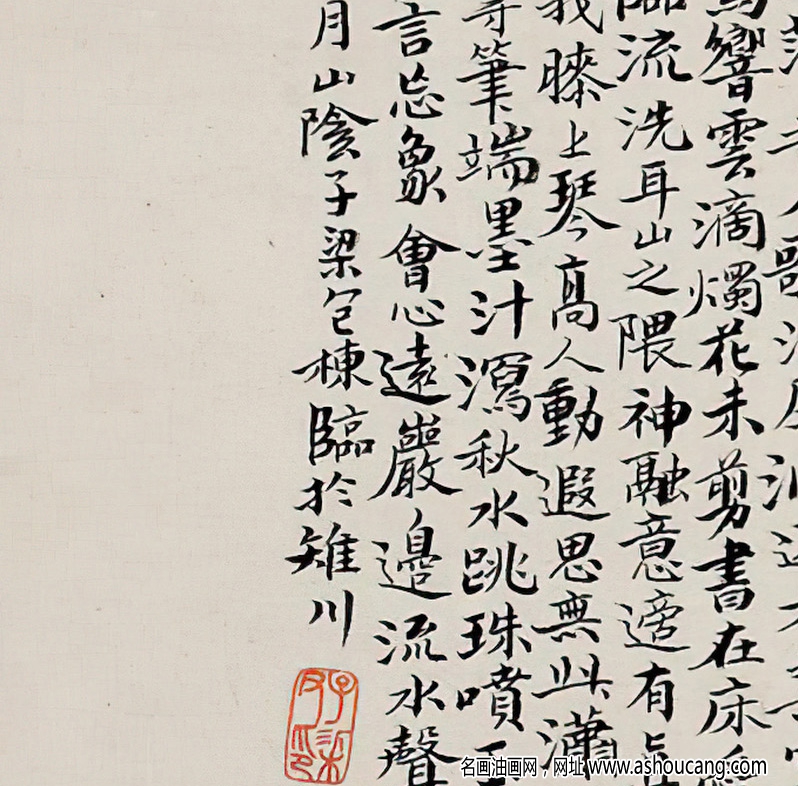 響雲滴燭花未剪書在床
流洗耳山之隈神融意適有
我膝上琴高人動遐思無與瀟
筆端墨汁瀉秋水跳珠噴
言忘象會心遠巖邊流水聲
月山陰子梁包棟臨於雉川
子梁
名画油画网，网址 www.ashoucang.com